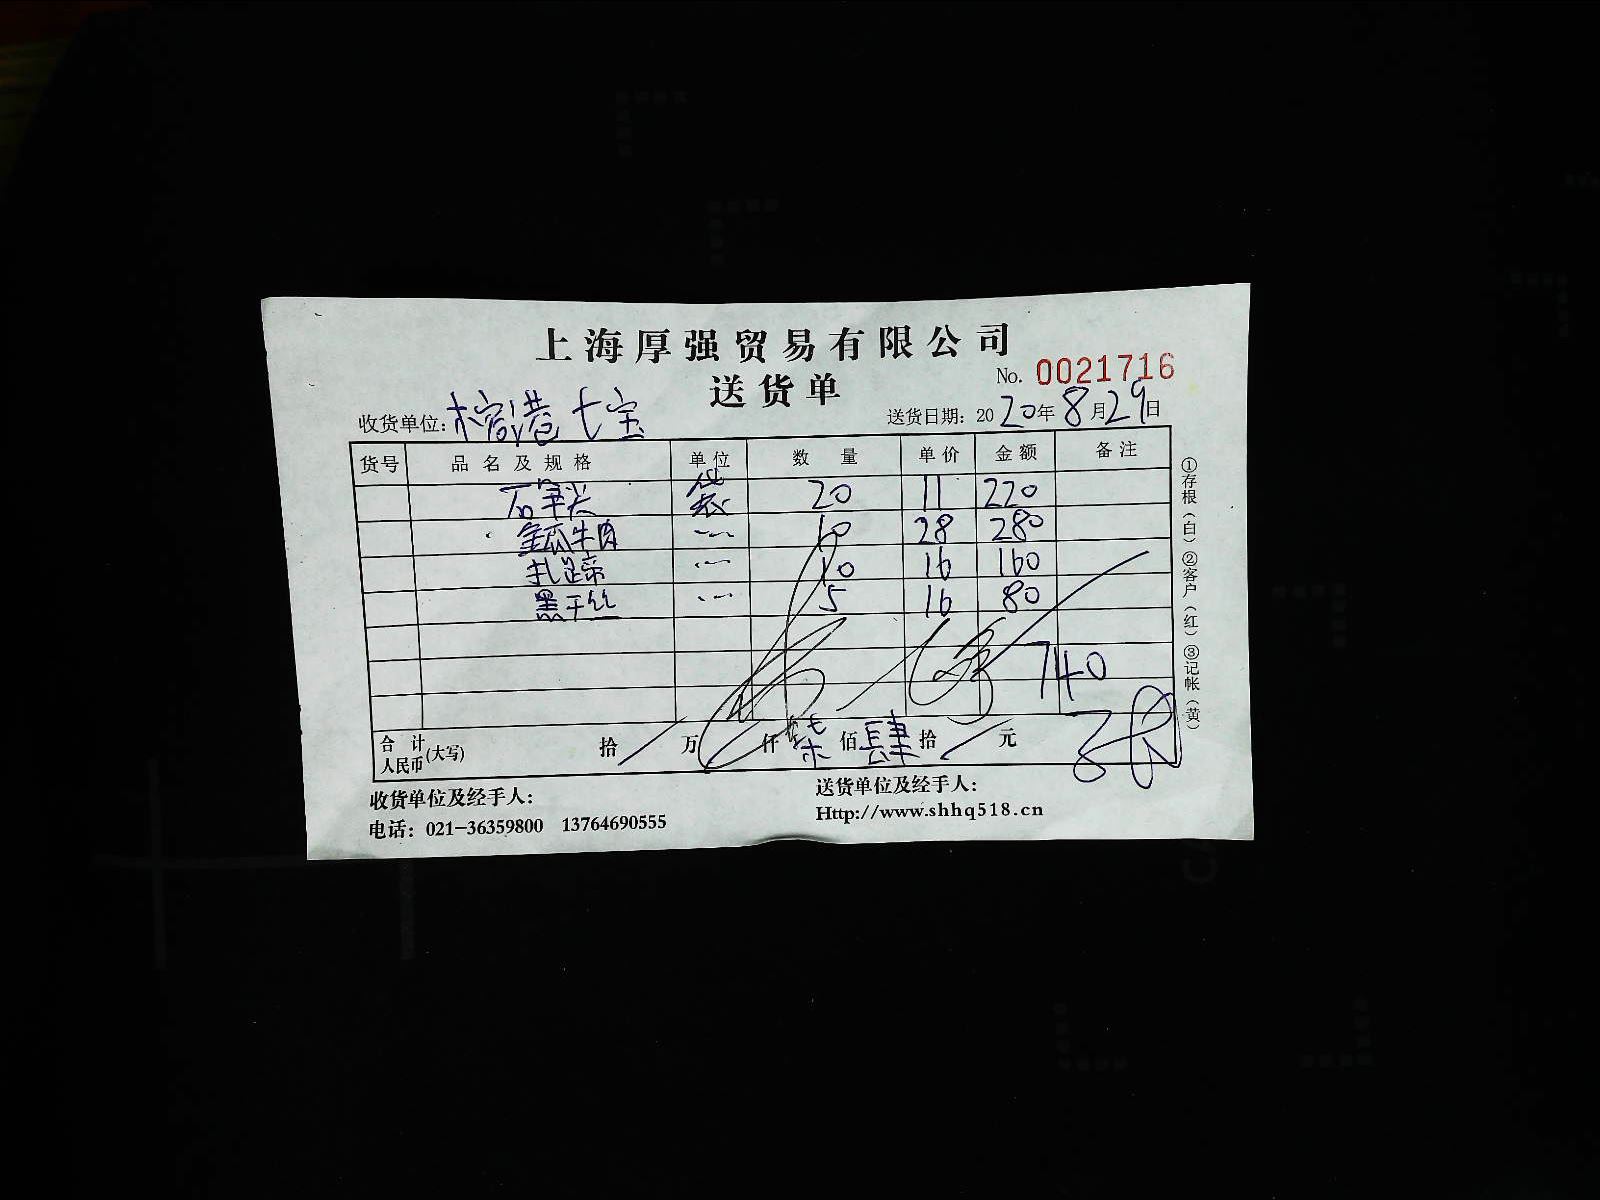 上海厚强贸易有限公司
送货单
No. 0021716
收货单位: 七宝
送货日期: 2020年8月29日
货号 品名及规格 单位 数量 单价 金额 备注
袋 20 11 220
金瓜牛肉 10 28 280
扎蹄 10 16 160
黑干丝 5 16 80
740
合计人民币(大写) 拾 万 仟 柒 佰 肆 拾 元
收货单位及经手人:
送货单位及经手人:
电话: 021-36359800 13764690555
Http://www.shhq518.cn
①存根(白)②客户(红)③记帐(黄)